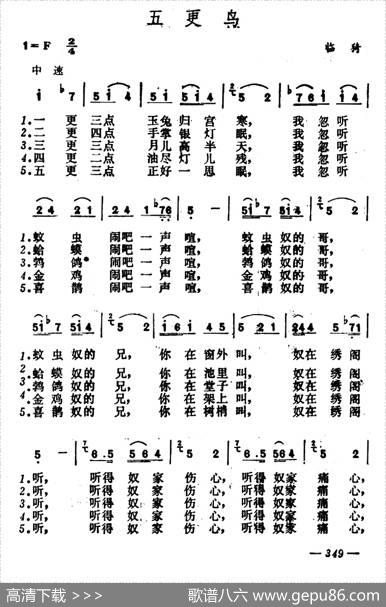 五更鸟
1=F 2/4
临猗
中速
1.一更三点 玉兔归宫寒, 我忽听
2.二更四点 手掌银灯眠, 我忽听
3.三更三点 月儿高半天, 我忽听
4.四更二点 油尽灯儿残, 我忽听
5.五更三点 正好一思眠, 我忽听
1.蚊虫 闹吧一声喧, 蚊虫奴的哥,
2.蛤蟆 闹吧一声喧, 蛤蟆奴的哥,
3.鹁鸽 闹吧一声喧, 鹁鸽奴的哥,
4.金鸡 闹吧一声喧, 金鸡奴的哥,
5.喜鹊 闹吧一声喧, 喜鹊奴的哥,
1.蚊虫奴的兄, 你在窗外叫, 奴在绣阁
2.蛤蟆奴的兄, 你在池里叫, 奴在绣阁
3.鹁鸽奴的兄, 你在堂子叫, 奴在绣阁
4.金鸡奴的兄, 你在架上叫, 奴在绣阁
5.喜鹊奴的兄, 你在树梢叫, 奴在绣阁
1.听, 听得奴家伤心, 听得奴家痛心,
2.听, 听得奴家伤心, 听得奴家痛心,
3.听, 听得奴家伤心, 听得奴家痛心,
4.听, 听得奴家伤心, 听得奴家痛心,
5.听, 听得奴家伤心, 听得奴家痛心,
— 349 —
高清下载 >>> 歌谱八六 www.gepu86.com